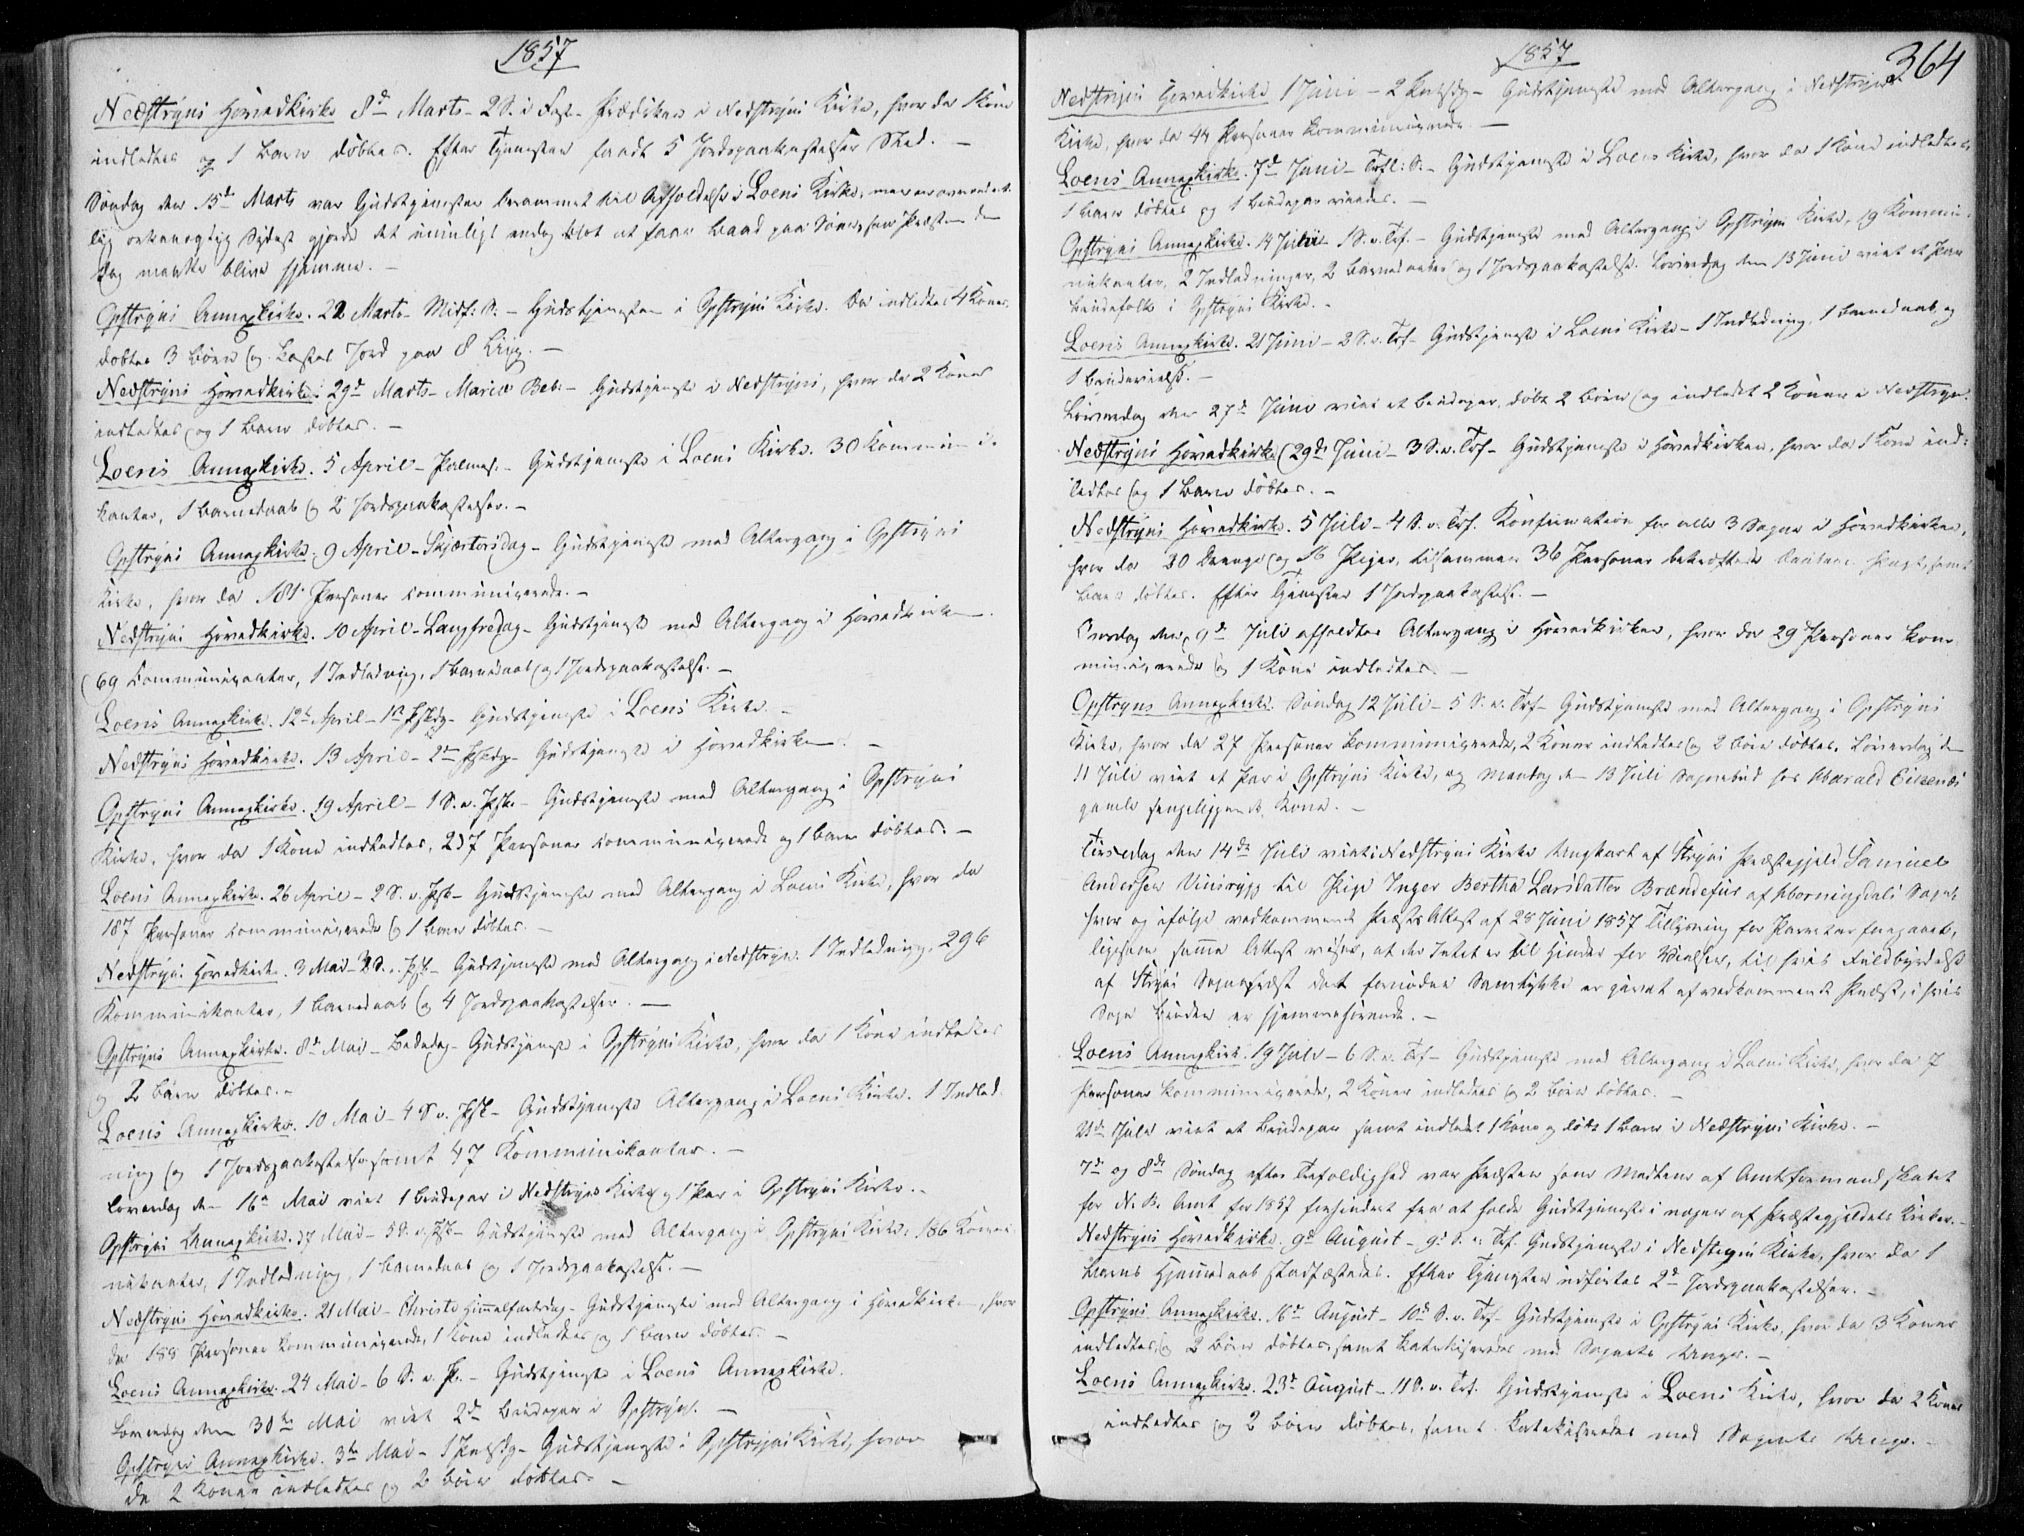 1857
Nedstryns Hovedkirke 8de Marts - 2 S. i Fast. Prædiken i Nedstryns Kirke, hvor da 1 Kone
indledtes og 1 Barn døbtes. Efter Tjenesten fandt 5 Jordspaakastelser Sted. -
Søndag den 15de Marts var Gudstjenesten berammet til Afholdelse i Loens Kirke, men en overordent-
lig orkanagtig Sydvest gjorde det umuligt endog blot at faae Baad paa Søen, saa Præsten den
Dag maatte blive hjemme. -
Opstryns Annexkirke. 22 Marts - Midf: S. - Gudstjenesten i Opstryns Kirke. Da indledtes 4 Koner,
døbtes 3 Børn og kastet Jord paa 8 Liig. -
Nedstryns Hovedkirke. 29de Marts - Mariæ Beb: - Gudstjeneste i Nedstryns, hvor da 2 Koner
indledtes og 1 Barn døbtes. -
Loens Annexkirke. 5 April - Palmes. - Gudstjeneste i Loens Kirke. 30 Kommuni-
kanter, 1 Barnedaab og 2 Jordspaakastelser. -
Opstryns Annexkirke. 9 April - Skjærtorsdag - Gudstjeneste med Altergang i Opstryns
Kirke, hvor da 181 Personer communicerede. -
Nedstryns Hovedkirke. 10 April - Langfredag - Gudstjeneste med Altergang i Hovedkirken.
69 Communicanter, 1 Indledning, 1 Barnedaab og 1 Jordspaakastelse. -
Loens Annexkirke. 12te April - 1ste Pskdg - Gudstjeneste i Loens Kirke. -
Nedstryns Hovedkirke. 13 April - 2den Pskdg - Gudstjeneste i Hovedkirken. -
Opstryns Annexkirke. 19 April - 1 S. e. Pske - Gudstjeneste med Altergang i Opstryns
Kirke, hvor da 1 Kone indledtes, 237 Personer communicerede og 1 Barn døbtes. -
Loens Annexkirke. 26 April - 2 S. e. Psk - Gudstjeneste med Altergang i Loens Kirke, hvor da
187 Personer communicerede og 1 Barn døbtes. -
Nedstryns Hovedkirke. 3 Mai - 3 S. e. Psk - Gudstjeneste med Altergang i Nedstryn. 1 Indledning, 296
Kommunikanter, 1 Barnedaab og 4 Jordspaakastelser. -
Opstryns Annexkirke. 8de Mai - Bededag - Gudstjeneste i Opstryns Kirke, hvor da 1 Kone indledtes
og 2 Børn døbtes. -
Loens Annexkirke. 10 Mai - 4 S. e. Psk - Gudstjeneste Altergang i Loens Kirke. 1 Indled-
ning og 1 Jordspaakastelse samt 47 Kommunikanter. -
Løverdag den 16de Mai viet 1 Brudepar i Nedstryns Kirke og 1 Par i Opstryns Kirke. -
Opstryns Annexkirke. 17 Mai - 5 S. e. Psk - Gudstjeneste med Altergang i Opstryns Kirke. 186 Kommu-
nikanter, 1 Indledning, 1 Barnedaab og 1 Jordspaakastelse. -
Nedstryns Hovedkirke. 21 Mai - Christi Himmelfartsdag - Gudstjeneste med Altergang i Hovedkirken, hvor
da 188 Personer kommunicerede, 1 Kone indledtes og 1 Barn døbtes. -
Loens Annexkirke. 24 Mai - 6 S. e. P. - Gudstjeneste i Loens Annexkirke.
Løverdag den 30te Mai viet 2de Brudepar i Opstryn. -
Opstryns Annexkirke. 31te Mai - 1 Pintsdg - Gudstjeneste i Opstryns Kirke, hvor
da 2 Koner indledtes og 2 Børn døbtes. -
1857
364
Nedstryns Hovedkirke 1 Juni - 2 Pintsdg - Gudstjeneste med Altergang i Nedstryns
Kirke, hvor da 44 Personer kommunicerede. -
Loens Annexkirke. 7de Juni - Trfl: S. - Gudstjeneste i Loens Kirke, hvor da 1 Kone indledtes,
1 Barn døbtes og 1 Brudepar viedes. -
Opstryns Annexkirke. 14 Juni 1 S. e. Trf. - Gudstjeneste med Altergang i Opstryns Kirke, 19 Kommu-
nikanter, 2 Indledninger, 2 Barnedaaber og 1 Jordspaakastelse. Løverdag den 13 Juni viet et Par
Brudefolk i Opstryns Kirke. -
Loens Annexkirke. 21 Juni - 2 S. e. Trf - Gudstjeneste i Loens Kirke - 1 Indledning, 1 Barnedaab og
1 Brudevielse. -
Løverdag den 27de Juni viet et Brudepar, døbt 2 Børn og indledet 2 Koner i Nedstryn.
Nedstryns Hovedkirke (29de Juni - 3 S. e. Trf - Gudstjeneste i Hovedkirken, hvor da 1 Kone ind-
ledtes og 1 Barn døbtes. -
Nedstryns Hovedkirke. 5 Juli - 4 S. e. Trf. Konfirmation for alle 3 Sogne i Hovedkirken,
hvor da 20 Drenge og 16 Piger, tilsammen 36 Personer bekræftede Daabens Pagt, samt
Barn døbtes. Efter Tjenesten 1 Jordspaakastelse. -
Onsdag den 9de Juli afholdtes Altergang i Hovedkirken, hvor da 29 Personer kom-
municerede og 1 Kone indledtes. -
Opstryns Annexkirke. Søndag 12 Juli - 5 S. e. Trf - Gudstjeneste med Altergang i Opstryns
Kirke, hvor da 27 Personer kommunicerede, 2 Koner indledtes og 2 Børn døbtes. Løverdag den
11 Juli viet et Par i Opstryns Kirke, og Mandag den 13 Juli Sognebud hos Harald
gamle sengeliggende Kone. -
Tirsdag den 14de Juli viet i Nedstryns Kirke Ungkarl af Stryns Præstegjeld Samuel
Andersen Vinsrygg til Pige Inger Bertha Larsdatter Brændefur af Hornindals Sogn,
hvor og ifølge vedkommende Præsts Attest af 28 Juni 1857 Tillysning for Parret er foregaaet,
ligesom samme Attest viser, at der Intet er til Hinder for Vielsen, til hvis Fuldbyrdelse
af Stryns Sognepræst det fornødne Samtykke er givet af vedkommende Præst, i hvis
Sogn Bruden er hjemmehørende. -
Loens Annexkirke. 19 Juli - 6 S. e. Trf - Gudstjeneste med Altergang i Loens Kirke, hvor da 7
Personer kommunicerede, 2 Koner indledtes og 2 Børn døbtes. -
Juli viet et Brudepar samt indledet 1 Kone og døbt 1 Barn i Nedstryns Kirke. -
7de og 8de Søndag efter Trefoldighed var Præsten som Medlem af Amtsformandskabet
for N. B. Amt for 1857 forhindret fra at holde Gudstjeneste i nogen af Præstegjeldets Kirker. -
Nedstryns Hovedkirke. 9de August - 9de S. e. Trf. Gudstjeneste i Nedstryns Kirke, hvor da 1
Barns Hjemmedaab stadfæstedes. Efter Tjenesten udførtes 2de Jordspaakastelser. -
Opstryns Annexkirke. 16de August - 10de S. e. Trf - Gudstjeneste i Opstryns Kirke, hvor da 3 Koner
indledtes og 2 Børn døbtes, samt katekiseredes med Sognets Unge. -
Loens Annexkirke. 23de August - 11 S. e. Trf. Gudstjeneste i Loens Kirke, hvor da 2 Koner
indledtes og 2 Børn døbtes, samt katekiseredes med Sognets Unge. -